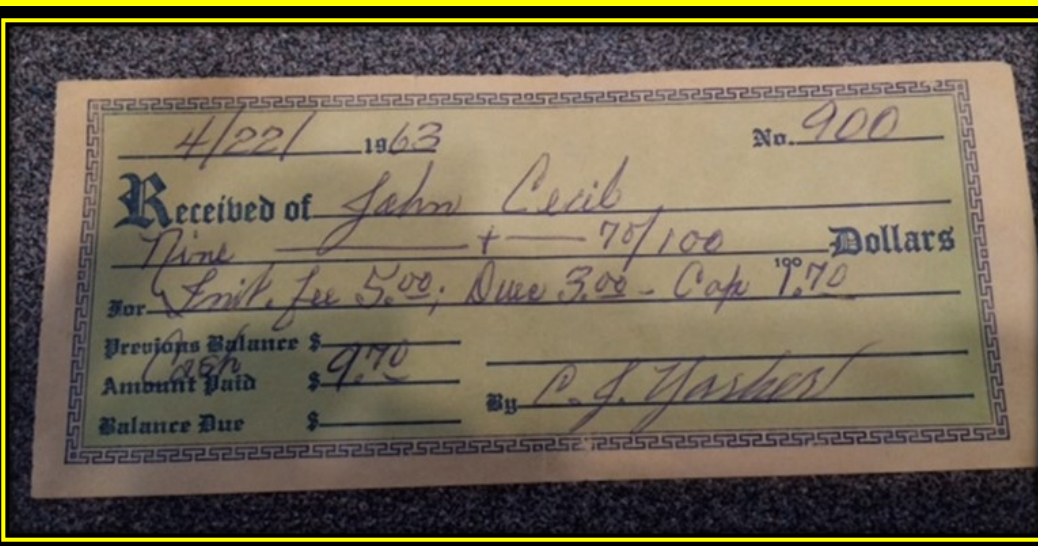 4/22/ 1963 No. 900
Received of John Cecil
Nine + 70/100 Dollars
100
For Init. fee 5.00; Dues 3.00 - Cap 1.70
Previous Balance $
Cash
Amount Paid $ 9.70
Balance Due $
By C. J.